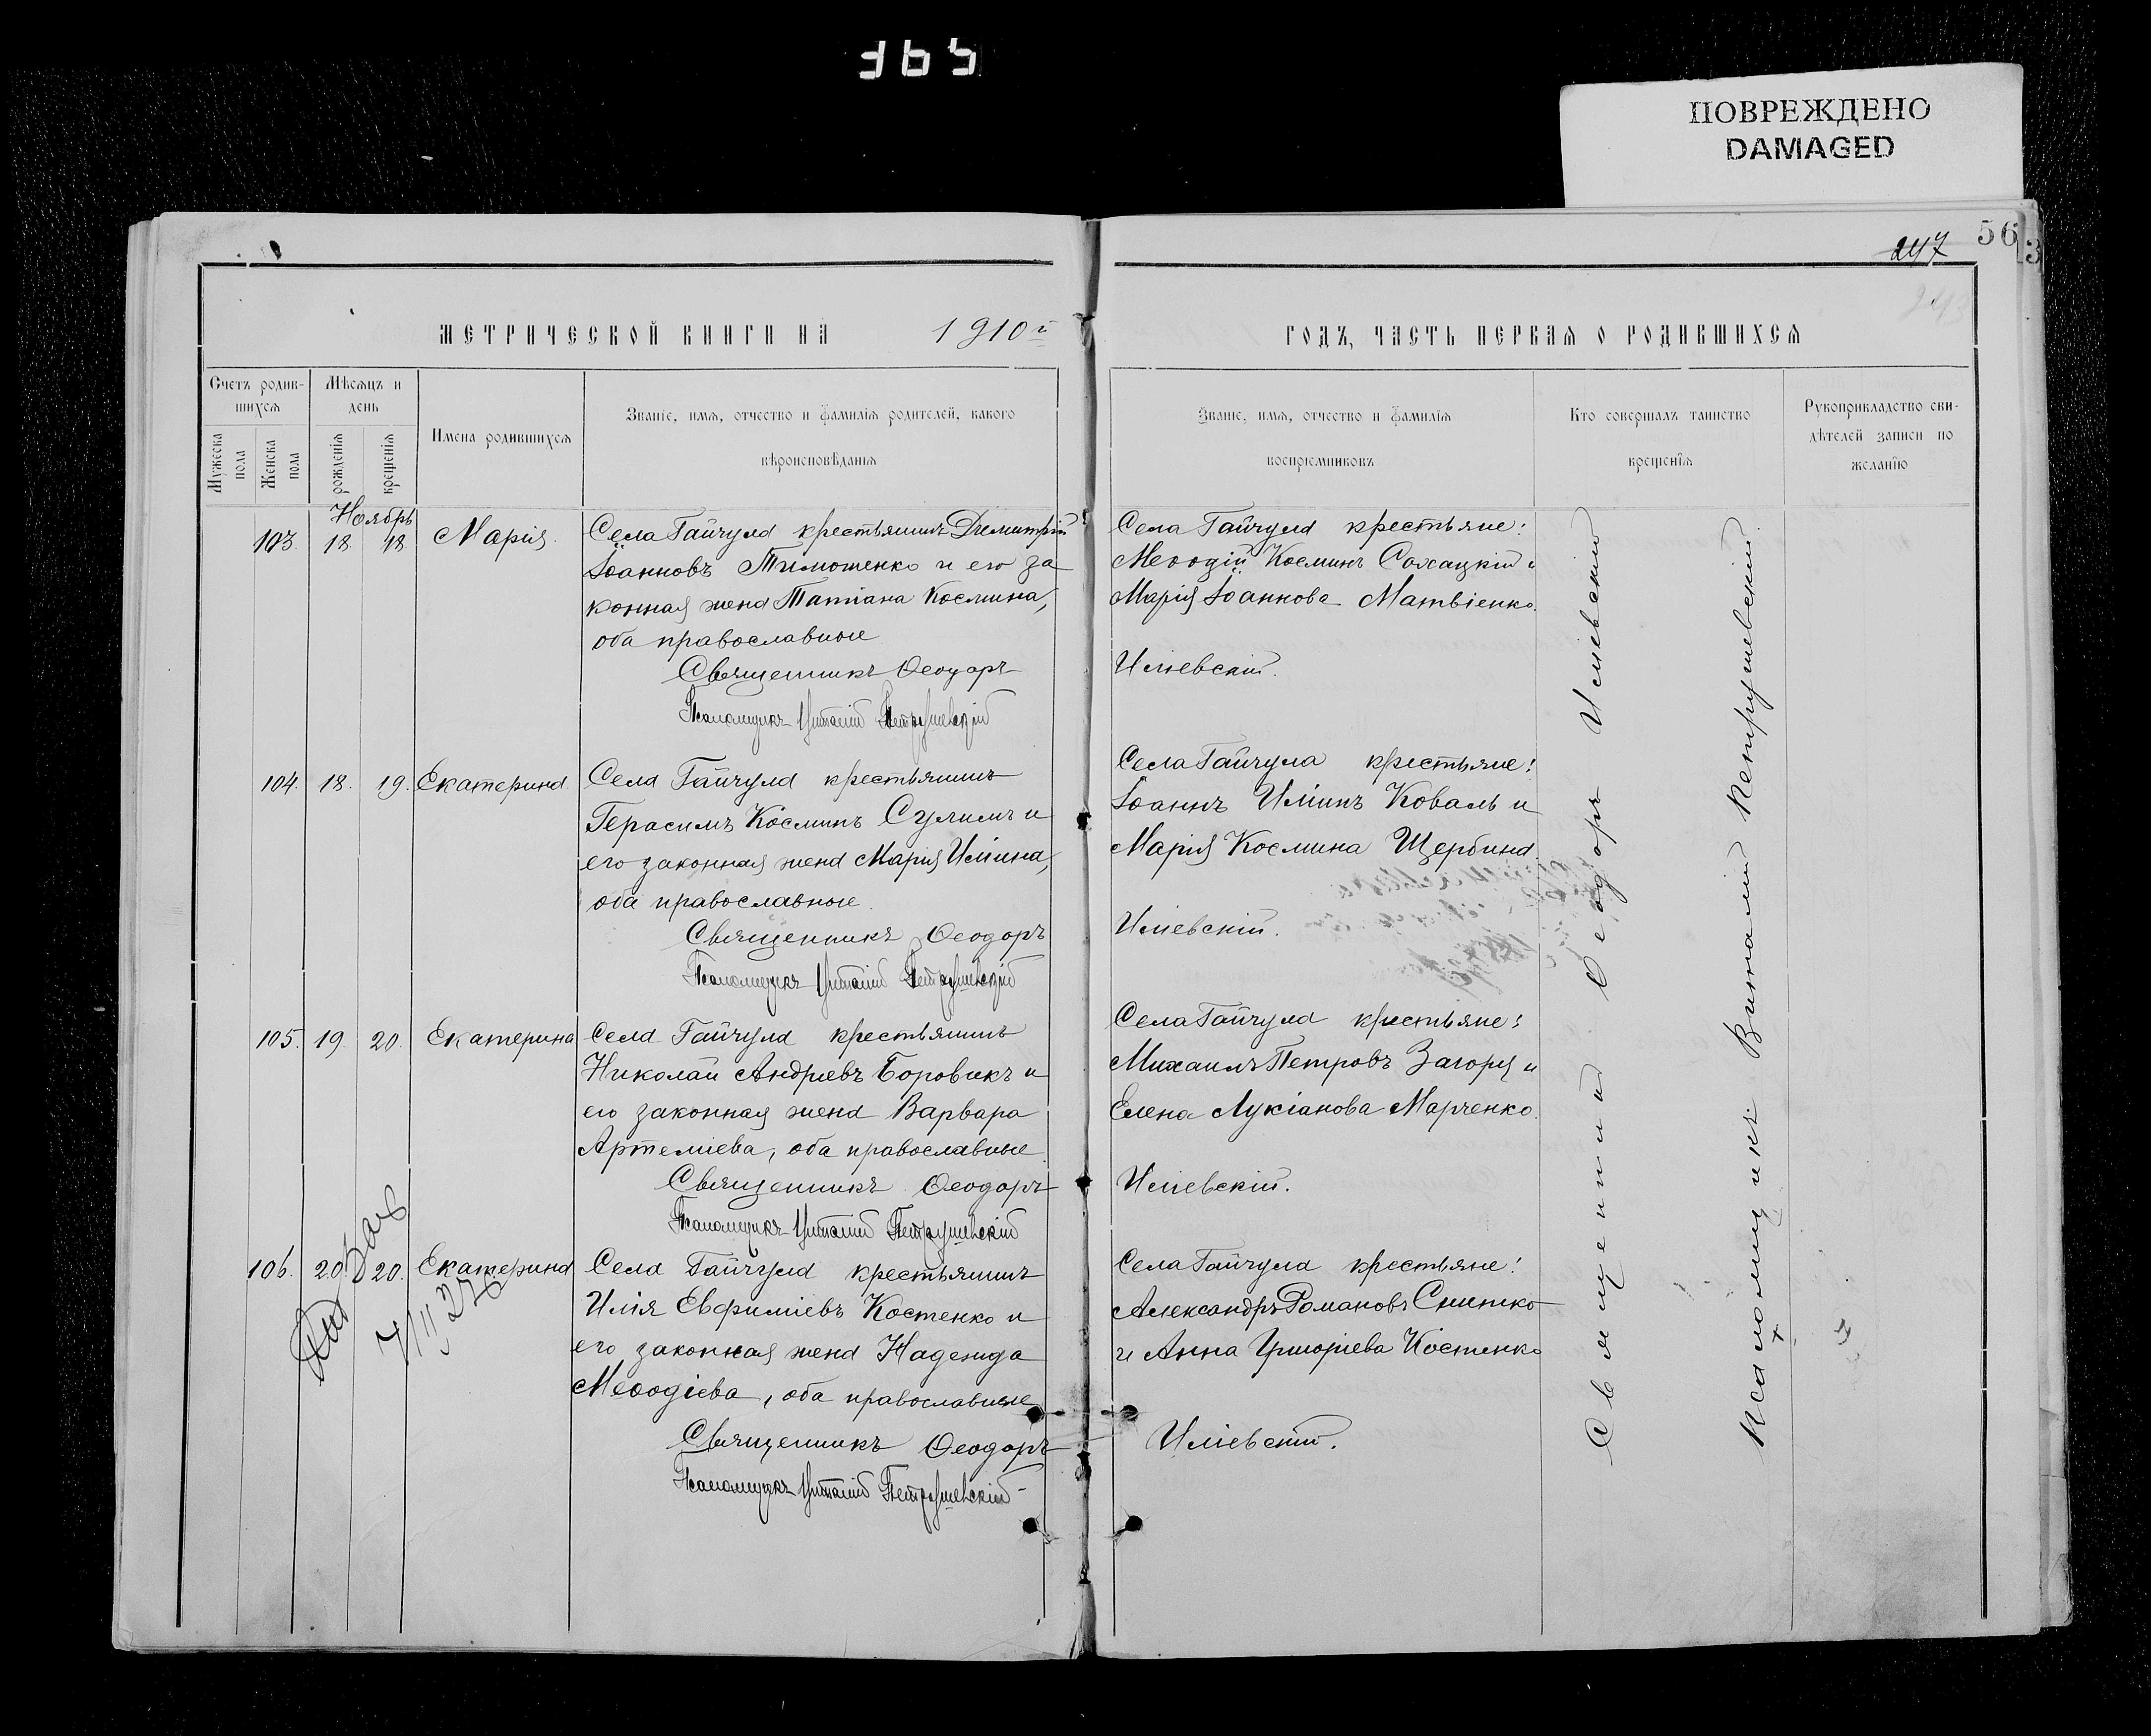 365
ПОВРЕЖДЕНО
DAMAGED
247
56
МЕТРИЧЕСКОЙ КНИГИ НА 1910й
ГОДЪ, ЧАСТЬ ПЕРВАЯ О РОДИВШИХСЯ
Счетъ родив-
шихся
Мужеска
пола
Женска
пола
Мѣсяцъ и
день
рожденія
крещенія
Имена родившихся
Званіе, имя, отчество и фамилія родителей, какого
вѣроисповѣданія
Званіе, имя, отчество и фамилія
воспріемниковъ
Кто совершалъ таинство
крещенія
Рукоприкладство сви-
дѣтелей записи по
желанію
Ноябрь
103. 18. 18. Марія.
Села Гайчула крестьянинъ Димитрій
Іоанновъ Тимошенко и его за
конная жена Татіана Космина,
оба православные
Священникъ Ѳеодоръ
Псаломщикъ Виталій Петрушевскій
Села Гайчула крестьяне:
Меѳодій Косминъ Сохацкій и
Марія Іоаннова Матвіенко.
Иліевскій.
104. 18. 19. Екатерина
Села Гайчула крестьянинъ
Герасимъ Косминъ Сулимъ и
его законная жена Марія Иліина,
оба православные.
Священникъ Ѳеодоръ
Псаломщикъ Виталій Петрушевскій
Села Гайчула крестьяне:
Іоаннъ Иліинъ Коваль и
Марія Космина Щербина
Иліевскій.
105. 19. 20. Екатерина
Села Гайчула крестьянинъ
Николай Андреевъ Боровикъ и
его законная жена Варвара
Артеміева, оба православные
Священникъ Ѳеодоръ
Псаломщикъ Виталій Петрушевскій
Села Гайчула крестьяне:
Михаилъ Петровъ Загоря и
Елена Лукіанова Марченко.
Иліевскій.
106. 20. 20. Екатерина
Села Гайчула крестьянинъ
Илія Евфиміевъ Костенко и
его законная жена Надежда
Меѳодіева, оба православные
Священникъ Ѳеодоръ
Псаломщикъ Виталій Петрушевскій
Села Гайчула крестьяне:
Александръ Романовъ Снитко
и Анна Григоріева Костенко
Иліевскій.
Священникъ Ѳеодоръ Иліевскій
Псаломщикъ Виталій Петрушевскій